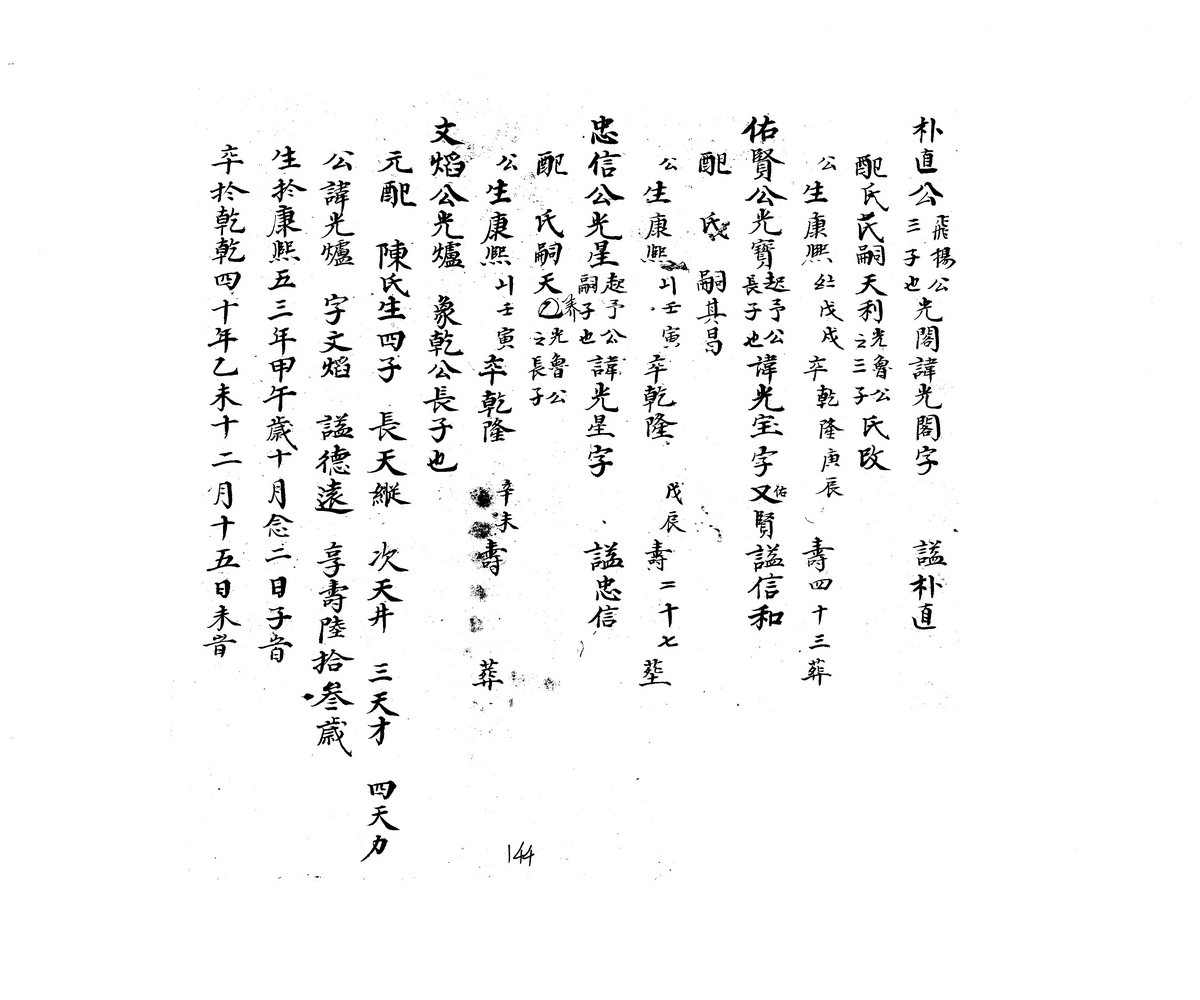 朴直公飛揚公三子也光閣諱光閣字 謚朴直
配氏民嗣天利光魯公之三子氏改
公生康熙戊戌卒乾隆庚辰壽四十三葬
佑賢公光寶起予公長子也諱光宝字又佑賢謚信和
配 氏 嗣其昌
公生康熙壬寅卒乾隆戊辰壽二十七塟
忠信公光星起予公嗣子也諱光星字 謚忠信
配 氏嗣天光魯公之長子
公生康熙壬寅卒乾隆辛未壽 葬
文熖公光爐 象乾公長子也
元配 陳氏生四子 長天縱 次天井 三天才 四天力
公諱光爐 字文熖 謚德遠 享壽陸拾叁歲
生於康熙五三年甲午歲十月念二日子旹
卒於乾乾四十年乙未十二月十五日未旹
144